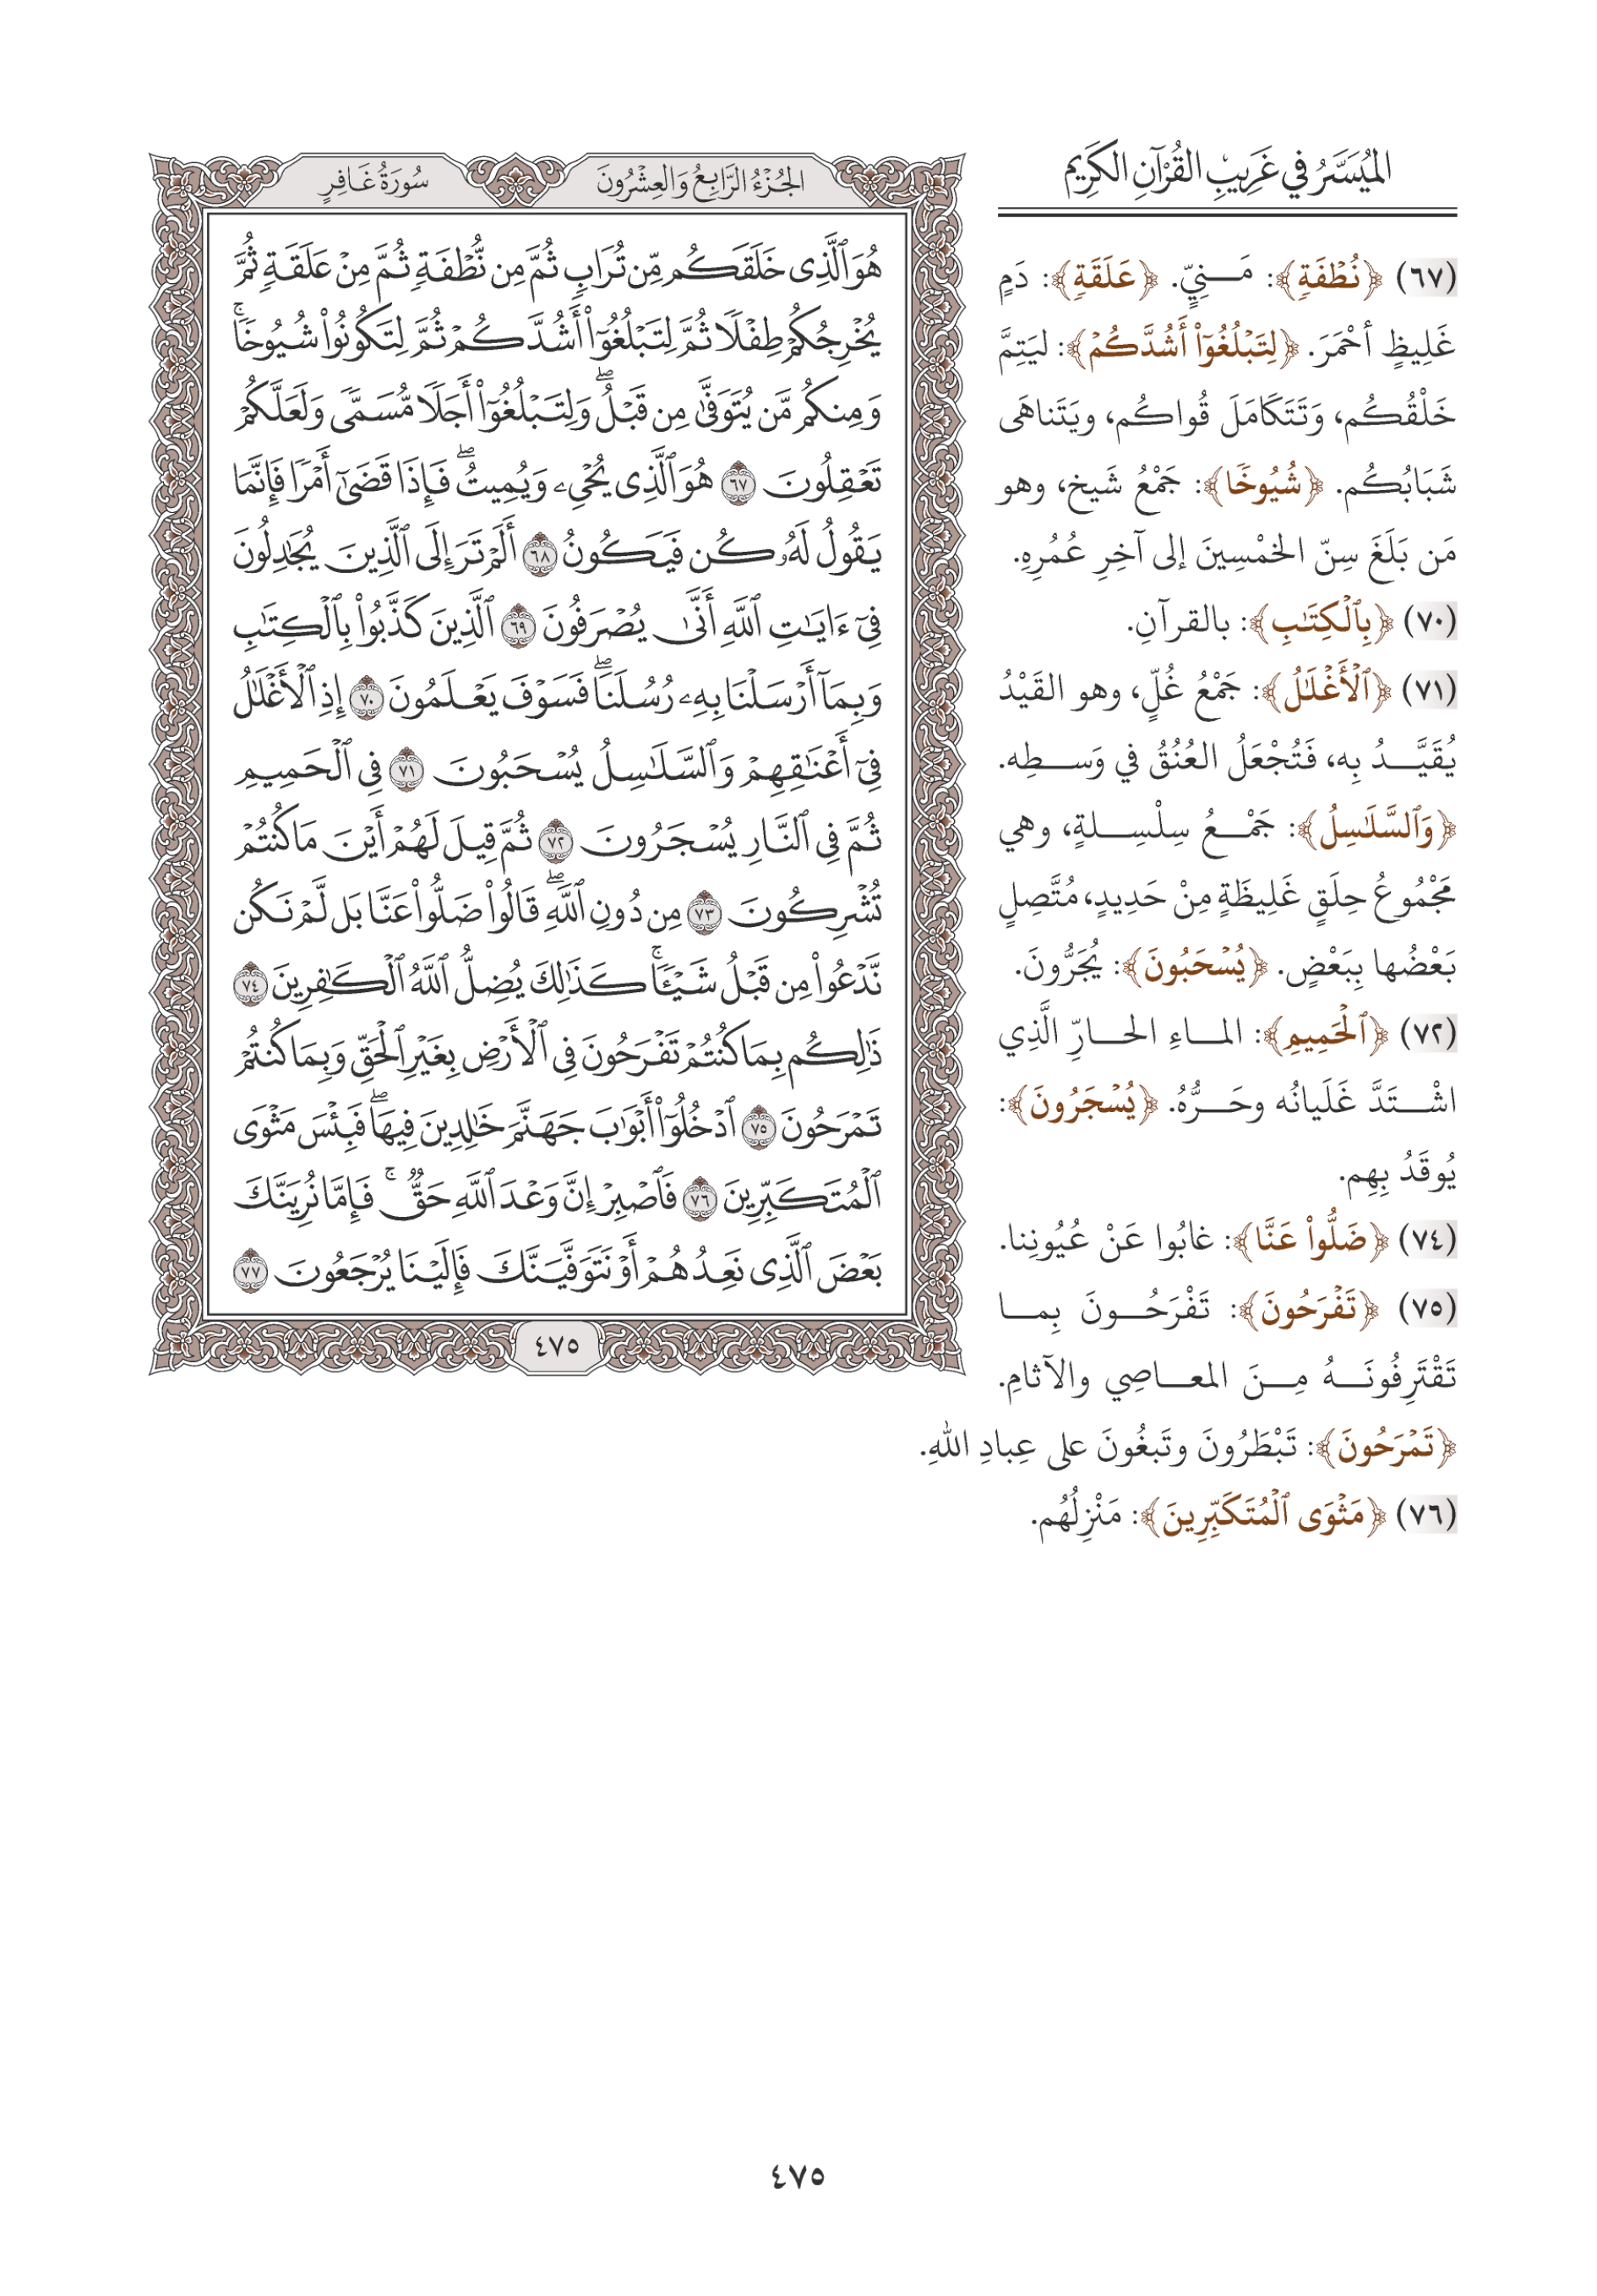 الميسر في غريب القرآن الكريم
(٦٧) ﴿نُطْفَةٍ﴾: مَنِيٍّ. ﴿عَلَقَةٍ﴾: دَمٍ
غَلِيظٍ أحْمَرَ. ﴿لِتَبْلُغُوٓاْ أَشُدَّكُمْ﴾: ليَتِمَّ
خَلْقُكُم، وَتَتَكَامَلَ قُواكُم، ويَتَناهَى
شَبَابُكُم. ﴿شُيُوخًا﴾: جَمْعُ شَيخ، وهو
مَن بَلَغَ سِنّ الخمْسِينَ إلى آخِرِ عُمُرِهِ.
(٧٠) ﴿بِٱلْكِتَٰبِ﴾: بالقرآنِ.
(٧١) ﴿ٱلْأَغْلَٰلُ﴾: جَمْعُ غُلٍّ، وهو القَيْدُ
يُقَيَّدُ بِه، فَتُجْعَلُ العُنُقُ في وَسطِه.
﴿وَٱلسَّلَٰسِلُ﴾: جَمْعُ سِلْسِلةٍ، وهي
مَجْمُوعُ حِلَقٍ غَلِيظَةٍ مِنْ حَدِيدٍ، مُتَّصِلٍ
بَعْضُها بِبَعْضٍ. ﴿يُسْحَبُونَ﴾: يُجَرُّونَ.
(٧٢) ﴿ٱلْحَمِيمِ﴾: الماءِ الحارِّ الَّذِي
اشْتَدَّ غَلَيانُه وحَرُّهُ. ﴿يُسْجَرُونَ﴾:
يُوقَدُ بِهِم.
(٧٤) ﴿ضَلُّواْ عَنَّا﴾: غابُوا عَنْ عُيُونِنا.
(٧٥) ﴿تَفْرَحُونَ﴾: تَفْرَحُونَ بِما
تَقْتَرِفُونَهُ مِنَ المعاصِي والآثامِ.
﴿تَمْرَحُونَ﴾: تَبْطَرُونَ وتَبغُونَ على عِبادِ اللهِ.
(٧٦) ﴿مَثْوَى ٱلْمُتَكَبِّرِينَ﴾: مَنْزِلُهُم.
الجُزْءُ الرَّابِعُ وَالعِشْرُونَ سُورَةُ غَافِرٍ
هُوَ ٱلَّذِى خَلَقَكُم مِّن تُرَابٍ ثُمَّ مِن نُّطْفَةٍ ثُمَّ مِنْ عَلَقَةٍ ثُمَّ
يُخْرِجُكُمْ طِفْلًا ثُمَّ لِتَبْلُغُوٓاْ أَشُدَّكُمْ ثُمَّ لِتَكُونُواْ شُيُوخًاۚ
وَمِنكُم مَّن يُتَوَفَّىٰ مِن قَبْلُۖ وَلِتَبْلُغُوٓاْ أَجَلًا مُّسَمًّى وَلَعَلَّكُمْ
تَعْقِلُونَ ٦٧ هُوَ ٱلَّذِى يُحْىِۦ وَيُمِيتُۖ فَإِذَا قَضَىٰٓ أَمْرًا فَإِنَّمَا
يَقُولُ لَهُۥ كُن فَيَكُونُ ٦٨ أَلَمْ تَرَ إِلَى ٱلَّذِينَ يُجَٰدِلُونَ
فِىٓ ءَايَٰتِ ٱللَّهِ أَنَّىٰ يُصْرَفُونَ ٦٩ ٱلَّذِينَ كَذَّبُواْ بِٱلْكِتَٰبِ
وَبِمَآ أَرْسَلْنَا بِهِۦ رُسُلَنَاۖ فَسَوْفَ يَعْلَمُونَ ٧٠ إِذِ ٱلْأَغْلَٰلُ
فِىٓ أَعْنَٰقِهِمْ وَٱلسَّلَٰسِلُ يُسْحَبُونَ ٧١ فِى ٱلْحَمِيمِ
ثُمَّ فِى ٱلنَّارِ يُسْجَرُونَ ٧٢ ثُمَّ قِيلَ لَهُمْ أَيْنَ مَا كُنتُمْ
تُشْرِكُونَ ٧٣ مِن دُونِ ٱللَّهِۖ قَالُواْ ضَلُّواْ عَنَّا بَل لَّمْ نَكُن
نَّدْعُواْ مِن قَبْلُ شَيْـًٔاۚ كَذَٰلِكَ يُضِلُّ ٱللَّهُ ٱلْكَٰفِرِينَ ٧٤
ذَٰلِكُم بِمَا كُنتُمْ تَفْرَحُونَ فِى ٱلْأَرْضِ بِغَيْرِ ٱلْحَقِّ وَبِمَا كُنتُمْ
تَمْرَحُونَ ٧٥ ٱدْخُلُوٓاْ أَبْوَٰبَ جَهَنَّمَ خَٰلِدِينَ فِيهَاۖ فَبِئْسَ مَثْوَى
ٱلْمُتَكَبِّرِينَ ٧٦ فَٱصْبِرْ إِنَّ وَعْدَ ٱللَّهِ حَقٌّۚ فَإِمَّا نُرِيَنَّكَ
بَعْضَ ٱلَّذِى نَعِدُهُمْ أَوْ نَتَوَفَّيَنَّكَ فَإِلَيْنَا يُرْجَعُونَ ٧٧
٤٧٥
٤٧٥